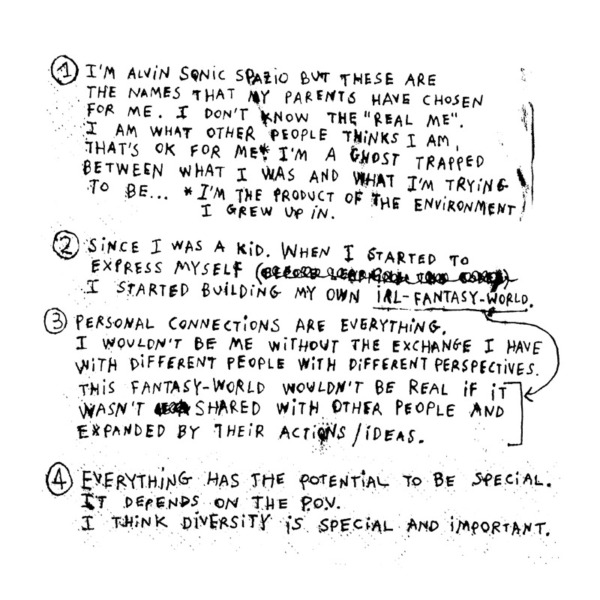 ① I'M ALVIN SONIC SPAZIO BUT THESE ARE
THE NAMES THAT MY PARENTS HAVE CHOSEN
FOR ME. I DON'T KNOW THE "REAL ME".
I AM WHAT OTHER PEOPLE THINKS I AM,
THAT'S OK FOR ME* I'M A GHOST TRAPPED
BETWEEN WHAT I WAS AND WHAT I'M TRYING
TO BE... * I'M THE PRODUCT OF THE ENVIRONMENT
I GREW UP IN.
② SINCE I WAS A KID. WHEN I STARTED TO
EXPRESS MYSELF
I STARTED BUILDING MY OWN IRL-FANTASY-WORLD.
③ PERSONAL CONNECTIONS ARE EVERYTHING.
I WOULDN'T BE ME WITHOUT THE EXCHANGE I HAVE
WITH DIFFERENT PEOPLE WITH DIFFERENT PERSPECTIVES.
THIS FANTASY-WORLD WOULDN'T BE REAL IF IT
WASN'T SHARED WITH OTHER PEOPLE AND
EXPANDED BY THEIR ACTIONS/IDEAS.
④ EVERYTHING HAS THE POTENTIAL TO BE SPECIAL.
IT DEPENDS ON THE POV.
I THINK DIVERSITY IS SPECIAL AND IMPORTANT.